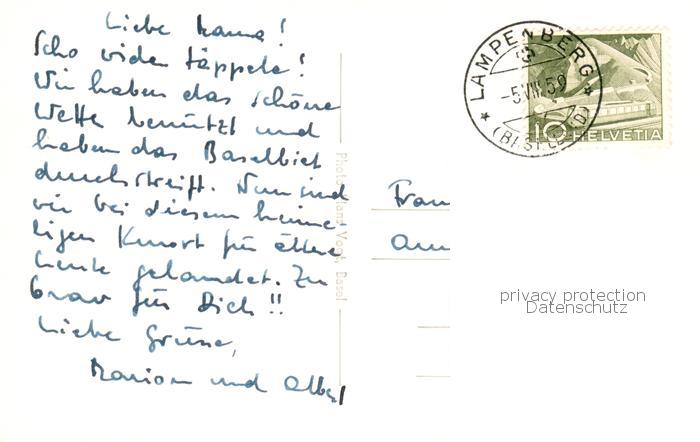 Liebe Mama!
Scho wider täppele!
Wir haben das schöne
Wetter benützt und
haben das Baselbiet
durchstreift. Nun sind
wir bei diesem heime-
ligen Kurort für ältere
Leute gelandet. Zu
brav für Dich!!
Liebe Grüsse,
Marion und
Photo Roland Vogt Basel
LAMPENBERG
-5.VIII.59
10 HELVETIA
Frau
privacy protection
Datenschutz